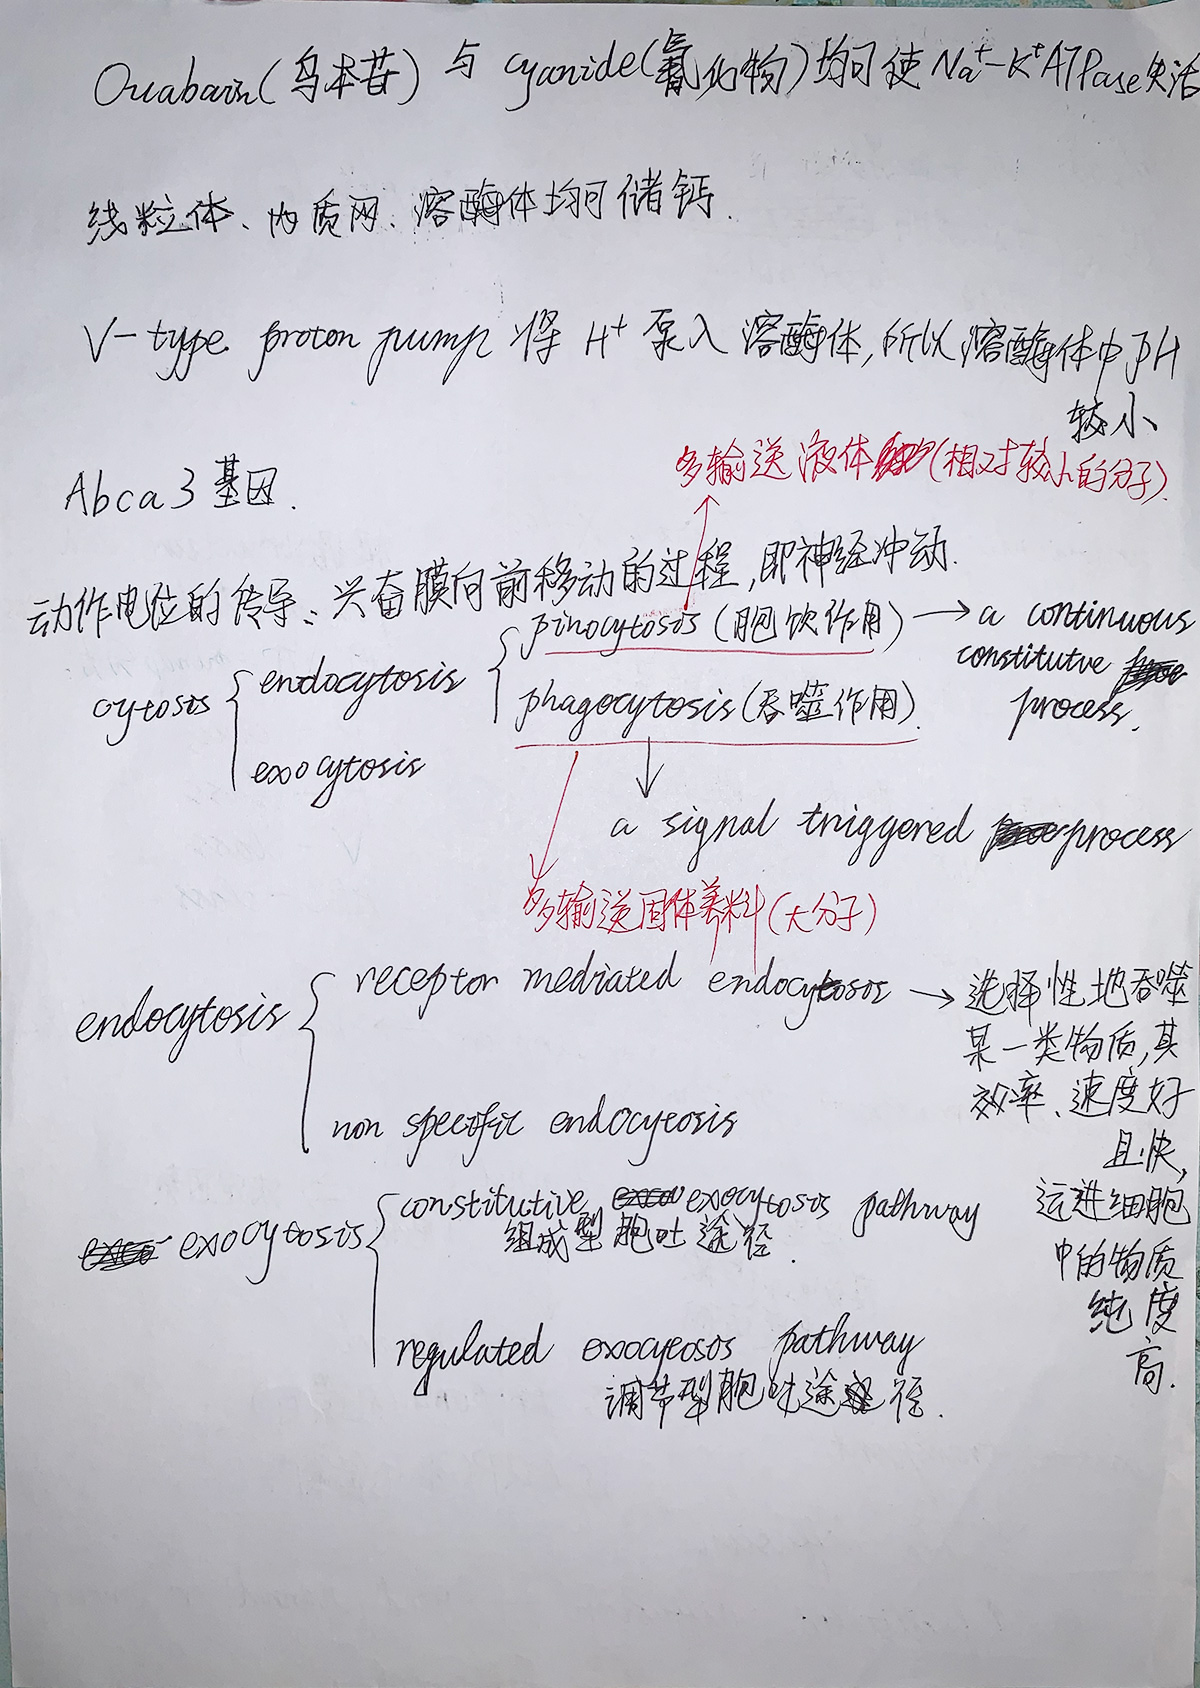 Ouabain(乌本苷)与 cyanide(氰化物)均可使Na⁺-K⁺ATPase失活
线粒体、内质网、溶酶体均可储钙.
V-type proton pump 将 H⁺ 泵入溶酶体,所以溶酶体中pH
较小
多输送液体(相对较小的分子).
Abca3基因.
动作电位的传导:兴奋膜向前移动的过程,即神经冲动.
pinocytosis(胞饮作用) → a continuous
constitutve
process.
cytosis
endocytosis
phagocytosis(吞噬作用).
exocytosis
a signal triggered process
多输送固体养料(大分子)
endocytosis
receptor mediated endocytosos → 选择性地吞噬
某一类物质,其
效率、速度好
且快,
运进细胞
中的物质
纯度
高.
non specific endocytosis
exocytosis
constitutive exocytosis pathway
组成型胞吐途径.
regulated exocytosos pathway
调节型胞吐途径.